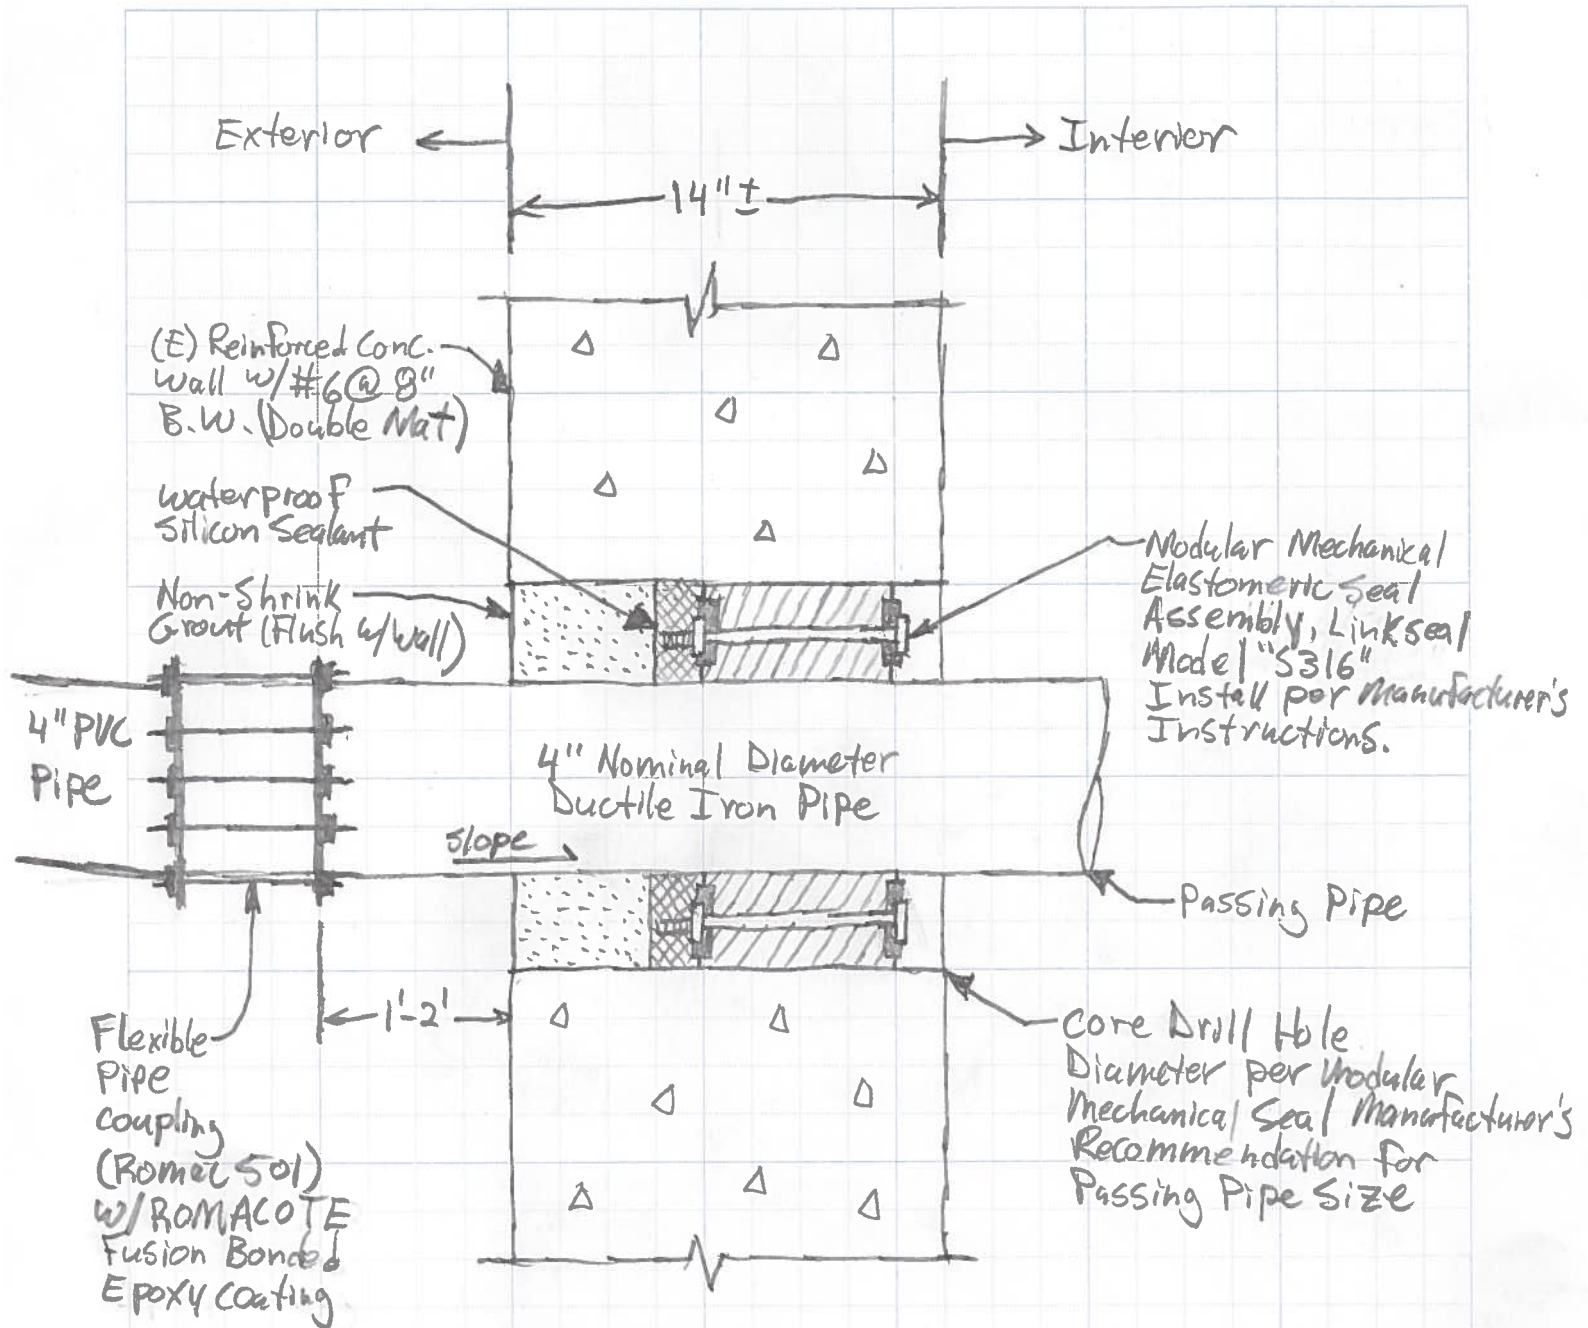 Exterior
Interior
14" ±
(E) Reinforced Conc.
Wall w/#6@8"
B.W. (Double Mat)
waterproof
Silicon Sealant
Non-Shrink
Grout (Flush w/wall)
Modular Mechanical
Elastomeric Seal
Assembly, Linkseal
Model "S316"
Install per Manufacturer's
Instructions.
4" PVC
Pipe
4" Nominal Diameter
Ductile Iron Pipe
slope
Passing Pipe
1'-2'
Flexible
Pipe
coupling
(Romac 501)
w/ROMACOTE
Fusion Bonded
Epoxy coating
Core Drill Hole
Diameter per Modular
Mechanical Seal Manufacturer's
Recommendation for
Passing Pipe Size